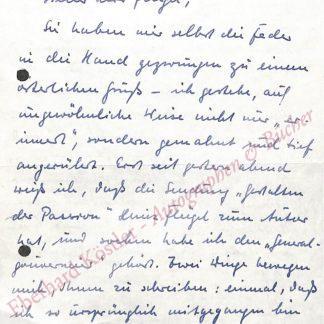 Sie haben mir selbst die Feder
in die Hand gezwungen zu einem
österlichen Gruß – ich gestehe, auf
ungewöhnliche Weise nicht nur „er-
innert", sondern gemahnt und tief
angerührt. Erst seit gestern abend
weiß ich, daß die Sendung „Gestalten
der Passion" zum Autor
hat, und soeben habe ich den „General-
gouverneur" gehört. Zwei Dinge bewegen
mich Ihnen zu schreiben: einmal, daß
ich so ursprünglich mitgegangen bin
Eberhard Köstler - Autographen & Bücher